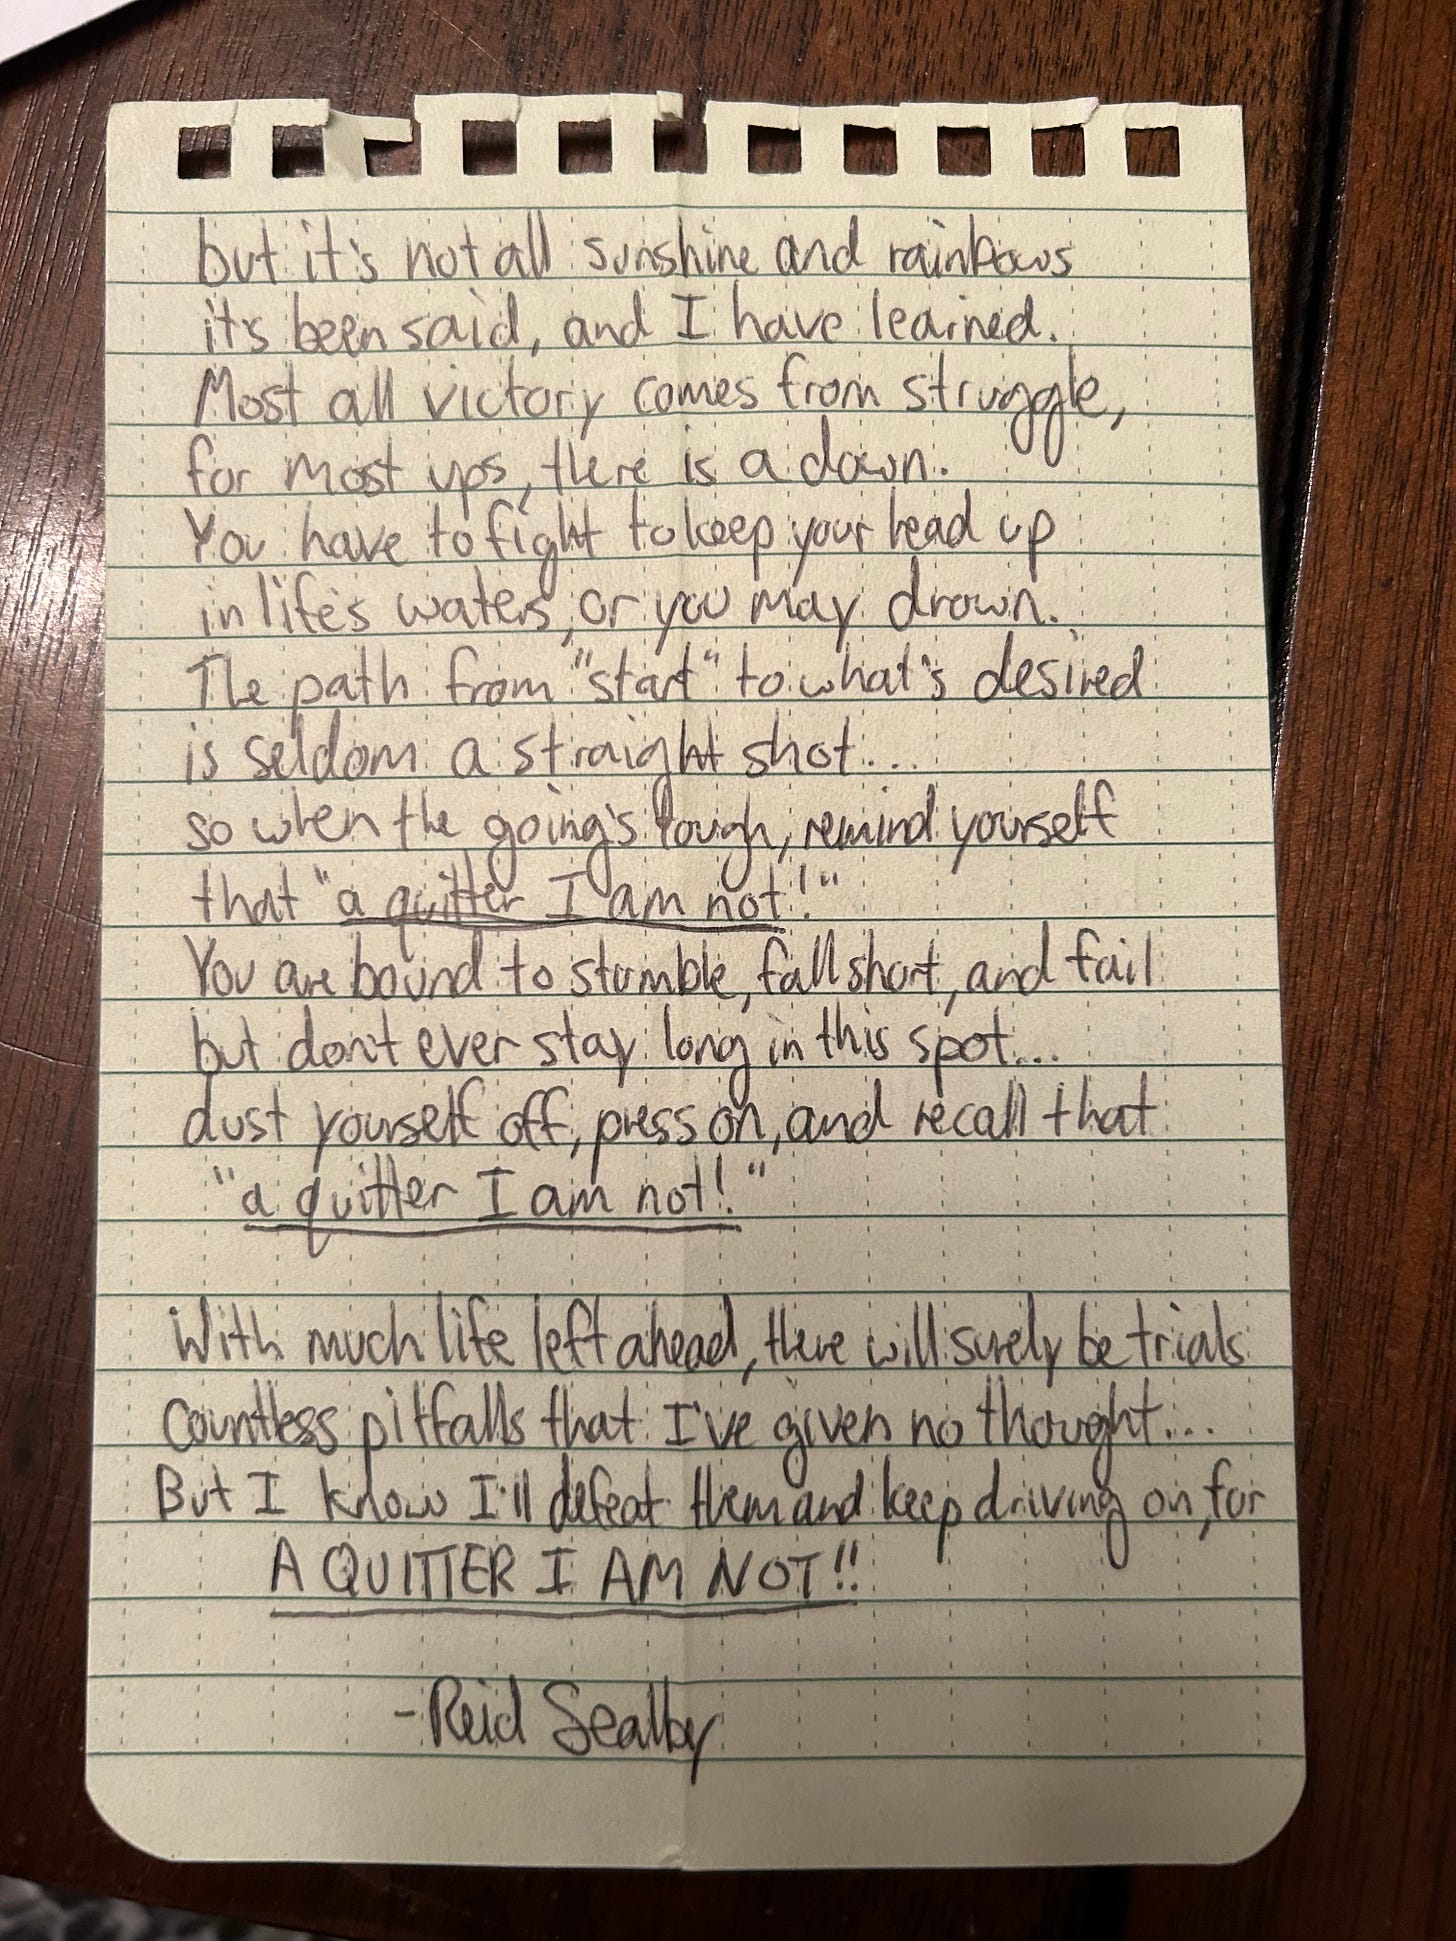 but it's not all sunshine and rainbows
it's been said, and I have learned.
Most all victory comes from struggle,
for most ups, there is a down.
You have to fight to keep your head up
in life's waters, or you may drown.
The path from "start" to what's desired
is seldom a straight shot...
so when the going's tough, remind yourself
that "a quitter I am not!"
You are bound to stumble, fall short, and fail
but don't ever stay long in this spot...
dust yourself off, press on, and recall that
"a quitter I am not!"
With much life left ahead, there will surely be trials
countless pitfalls that I've given no thought...
But I know I'll defeat them and keep driving on, for
A QUITTER I AM NOT!!
-Reid Sealby